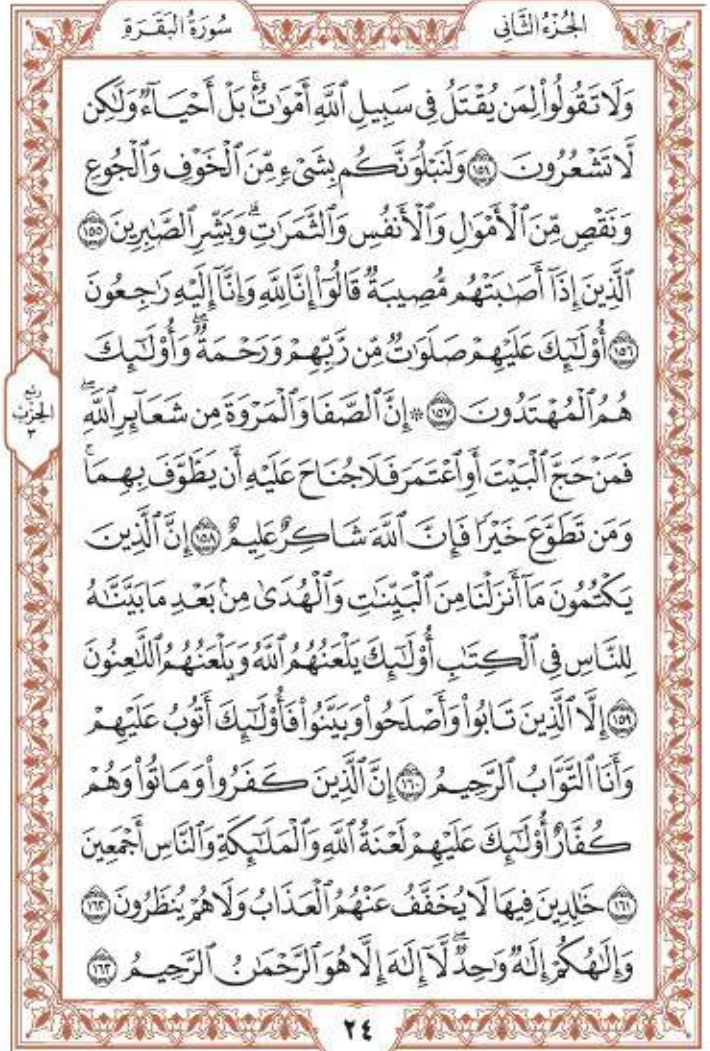 الجُزْءُ الثَّانِى
سُورَةُ البَقَرَةِ
وَلَا تَقُولُوا۟ لِمَن يُقْتَلُ فِى سَبِيلِ ٱللَّهِ أَمْوَٰتٌۢ ۚ بَلْ أَحْيَآءٌ وَلَٰكِن
لَّا تَشْعُرُونَ ١٥٤ وَلَنَبْلُوَنَّكُم بِشَىْءٍ مِّنَ ٱلْخَوْفِ وَٱلْجُوعِ
وَنَقْصٍ مِّنَ ٱلْأَمْوَٰلِ وَٱلْأَنفُسِ وَٱلثَّمَرَٰتِ ۗ وَبَشِّرِ ٱلصَّٰبِرِينَ ١٥٥
ٱلَّذِينَ إِذَآ أَصَٰبَتْهُم مُّصِيبَةٌ قَالُوٓا۟ إِنَّا لِلَّهِ وَإِنَّآ إِلَيْهِ رَٰجِعُونَ
١٥٦ أُو۟لَٰٓئِكَ عَلَيْهِمْ صَلَوَٰتٌ مِّن رَّبِّهِمْ وَرَحْمَةٌ ۖ وَأُو۟لَٰٓئِكَ
هُمُ ٱلْمُهْتَدُونَ ١٥٧ ۞ إِنَّ ٱلصَّفَا وَٱلْمَرْوَةَ مِن شَعَآئِرِ ٱللَّهِ ۖ
فَمَنْ حَجَّ ٱلْبَيْتَ أَوِ ٱعْتَمَرَ فَلَا جُنَاحَ عَلَيْهِ أَن يَطَّوَّفَ بِهِمَا ۚ
وَمَن تَطَوَّعَ خَيْرًا فَإِنَّ ٱللَّهَ شَاكِرٌ عَلِيمٌ ١٥٨ إِنَّ ٱلَّذِينَ
يَكْتُمُونَ مَآ أَنزَلْنَا مِنَ ٱلْبَيِّنَٰتِ وَٱلْهُدَىٰ مِنۢ بَعْدِ مَا بَيَّنَّٰهُ
لِلنَّاسِ فِى ٱلْكِتَٰبِ أُو۟لَٰٓئِكَ يَلْعَنُهُمُ ٱللَّهُ وَيَلْعَنُهُمُ ٱللَّٰعِنُونَ
١٥٩ إِلَّا ٱلَّذِينَ تَابُوا۟ وَأَصْلَحُوا۟ وَبَيَّنُوا۟ فَأُو۟لَٰٓئِكَ أَتُوبُ عَلَيْهِمْ
وَأَنَا ٱلتَّوَّابُ ٱلرَّحِيمُ ١٦٠ إِنَّ ٱلَّذِينَ كَفَرُوا۟ وَمَاتُوا۟ وَهُمْ
كُفَّارٌ أُو۟لَٰٓئِكَ عَلَيْهِمْ لَعْنَةُ ٱللَّهِ وَٱلْمَلَٰٓئِكَةِ وَٱلنَّاسِ أَجْمَعِينَ
١٦١ خَٰلِدِينَ فِيهَا لَا يُخَفَّفُ عَنْهُمُ ٱلْعَذَابُ وَلَا هُمْ يُنظَرُونَ ١٦٢
وَإِلَٰهُكُمْ إِلَٰهٌ وَٰحِدٌ ۖ لَّآ إِلَٰهَ إِلَّا هُوَ ٱلرَّحْمَٰنُ ٱلرَّحِيمُ ١٦٣
ربع
الحزب
٣
٢٤